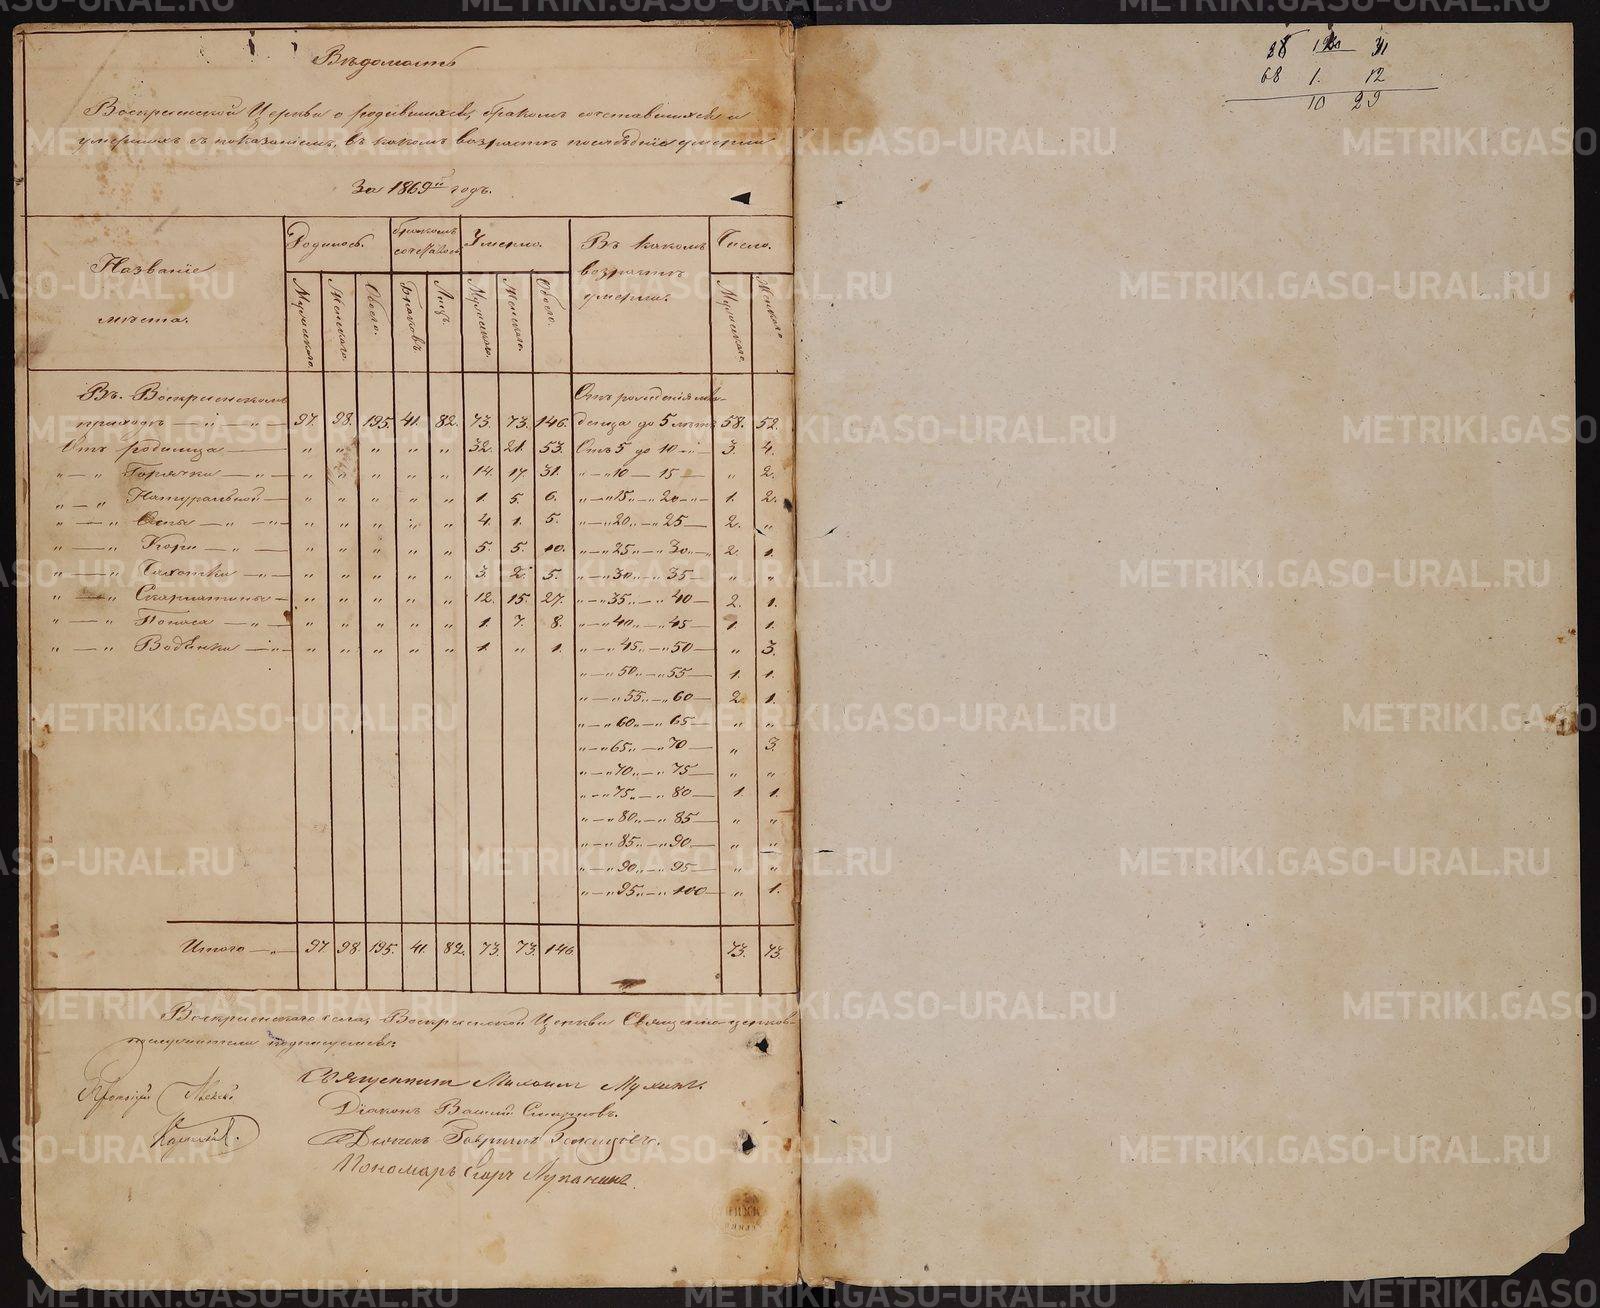 Вѣдомость
Воскресенской Церкви о родившихся, бракомъ сочетавшихся и
умершихъ съ показаніемъ, въ какомъ возрастѣ послѣдніе умерли
За 1869й годъ.
Названіе мѣста. Родилось. бракомъ сочеталось Умерло. Въ какомъ возрастѣ умерли. Число.
Мужескаго. Женскаго. Обоего. Браковъ Лицъ Мужескаго. Женскаго. Обоего. Мужескаго. Женскаго.
Въ Воскресенскомъ Отъ рожденія мла-
приходѣ — „ — „ — 97. 98. 195. 41. 82. 73. 73. 146. денца до 5 лѣтъ 58. 52.
Отъ родимца — „ „ „ „ „ 32. 21. 53. Отъ 5 до 10 — „ — 3. 4.
„ — „ Горячки — „ — „ „ „ „ „ 14. 17. 31. „ — „ 10 — 15 — „ 2.
„ — „ Натуральной — „ „ „ „ „ 1. 5. 6. „ — „ 15 „ — „ 20 — „ — 1. 2.
„ — „ Оспы — „ — „ — „ „ „ „ „ 4. 1. 5. „ — „ 20 „ — „ 25 — 2. „
„ — „ Кори — „ — „ „ „ „ „ 5. 5. 10. „ — „ 25 „ — „ 30 „ — „ 2. 1.
„ — „ Чахотки — „ — „ „ „ „ „ 3. 2. 5. „ — „ 30 „ — „ 35 — „ „
„ — „ Скарлатины — „ „ „ „ „ 12. 15. 27. „ — „ 35 „ — „ 40 — 2. 1.
„ — „ Поноса — „ — „ „ „ „ „ 1. 7. 8. „ — „ 40 „ — „ 45 — 1. 1.
„ — „ Водянки — „ — „ „ „ „ „ 1. „ 1. „ — „ 45 „ — „ 50 — „ 3.
„ — „ 50 „ — „ 55 — 1. 1.
„ — „ 55 „ — „ 60 — 2. 1.
„ — „ 60 „ — „ 65 — „ „
„ — „ 65 „ — „ 70 — „ 3.
„ — „ 70 „ — „ 75 — „ „
„ — „ 75 „ — „ 80 — 1. 1.
„ — „ 80 „ — „ 85 — „ „
„ — „ 85 „ — „ 90 — „ „
„ — „ 90 „ — „ 95 — „ „
„ — „ 95 „ — „ 100 — „ 1.
Итого — „ 97 98. 195. 41. 82. 73. 73. 146 73. 73.
Воскресенскаго села, Воскресенской Церкви Священно-церков-
нослужители подписуемся:
Священникъ Михаилъ Мухинъ.
Діаконъ Василій Смирновъ.
Дьячекъ Гавріилъ
Пономарь Егоръ Лупанинъ
31
68 1. 12
10 29
METRIKI.GASO-URAL.RU